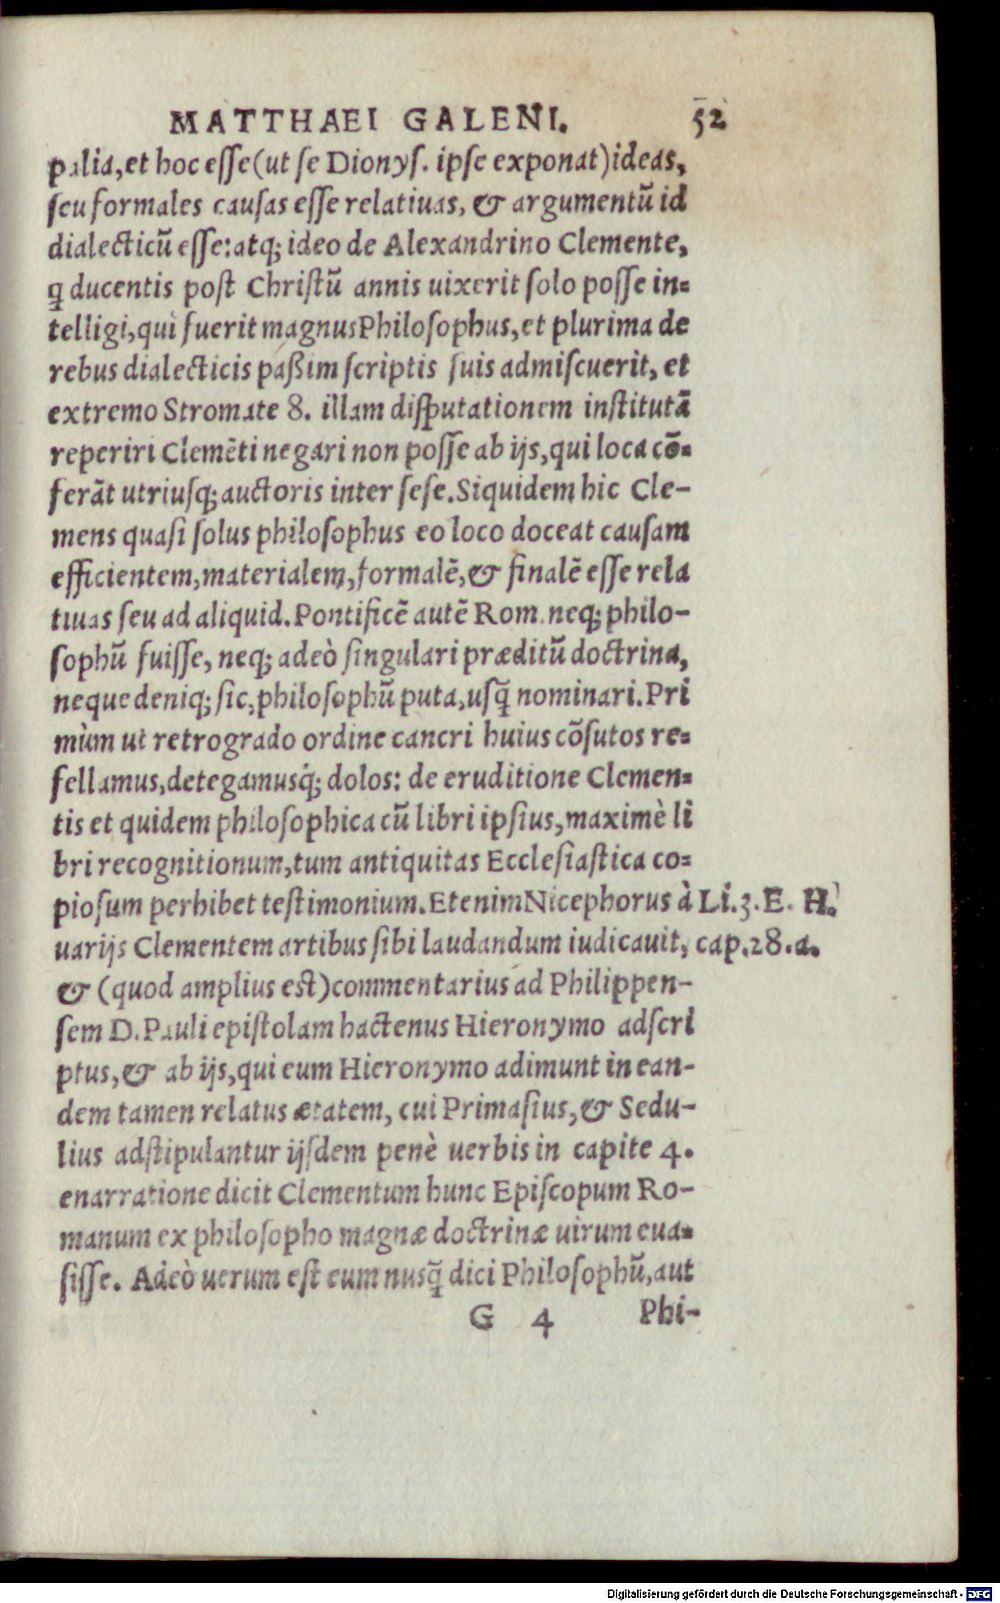 MATTHAEI GALENI. 52
palia, et hoc esse (ut se Dionys. ipse exponat) ideas,
seu formales causas esse relatiuas, & argumentũ id
dialecticũ esse: atq; ideo de Alexandrino Clemente,
q̃ ducentis post Christũ annis uixerit solo posse in=
telligi, qui fuerit magnus Philosophus, et plurima de
rebus dialecticis paßim scriptis suis admiscuerit, et
extremo Stromate 8. illam disputationem institutã
reperiri Clemẽti negari non posse ab ijs, qui loca cõ=
ferãt utriusq; auctoris inter sese. Siquidem hic Cle-
mens quasi solus philosophus eo loco doceat causam
efficientem, materialem, formalẽ, & finalẽ esse rela
tiuas seu ad aliquid. Pontificẽ autẽ Rom. neq; philo-
sophũ fuisse, neq; adeò singulari præditũ doctrina,
neque deniq; sic, philosophũ puta, usq̃ nominari. Pri
mùm ut retrogrado ordine cancri huius cõsutos re=
fellamus, detegamusq́; dolos: de eruditione Clemen=
tis et quidem philosophica cũ libri ipsius, maximè li
bri recognitionum, tum antiquitas Ecclesiastica co=
piosum perhibet testimonium. Etenim Nicephorus à Li. 3. E. H.
uarijs Clementem artibus sibi laudandum iudicauit, cap. 28. a.
& (quod amplius est) commentarius ad Philippen-
sem D. Pauli epistolam hactenus Hieronymo adscri
ptus, & ab ijs, qui eum Hieronymo adimunt in ean-
dem tamen relatus ætatem, cui Primasius, & Sedu-
lius adstipulantur ijsdem penè uerbis in capite 4.
enarratione dicit Clementum hunc Episcopum Ro-
manum ex philosopho magnæ doctrinæ uirum eua=
sisse. Adeò uerum est eum nusq̃ dici Philosophũ, aut
G 4 Phi-
Digitalisierung gefördert durch die Deutsche Forschungsgemeinschaft - DFG